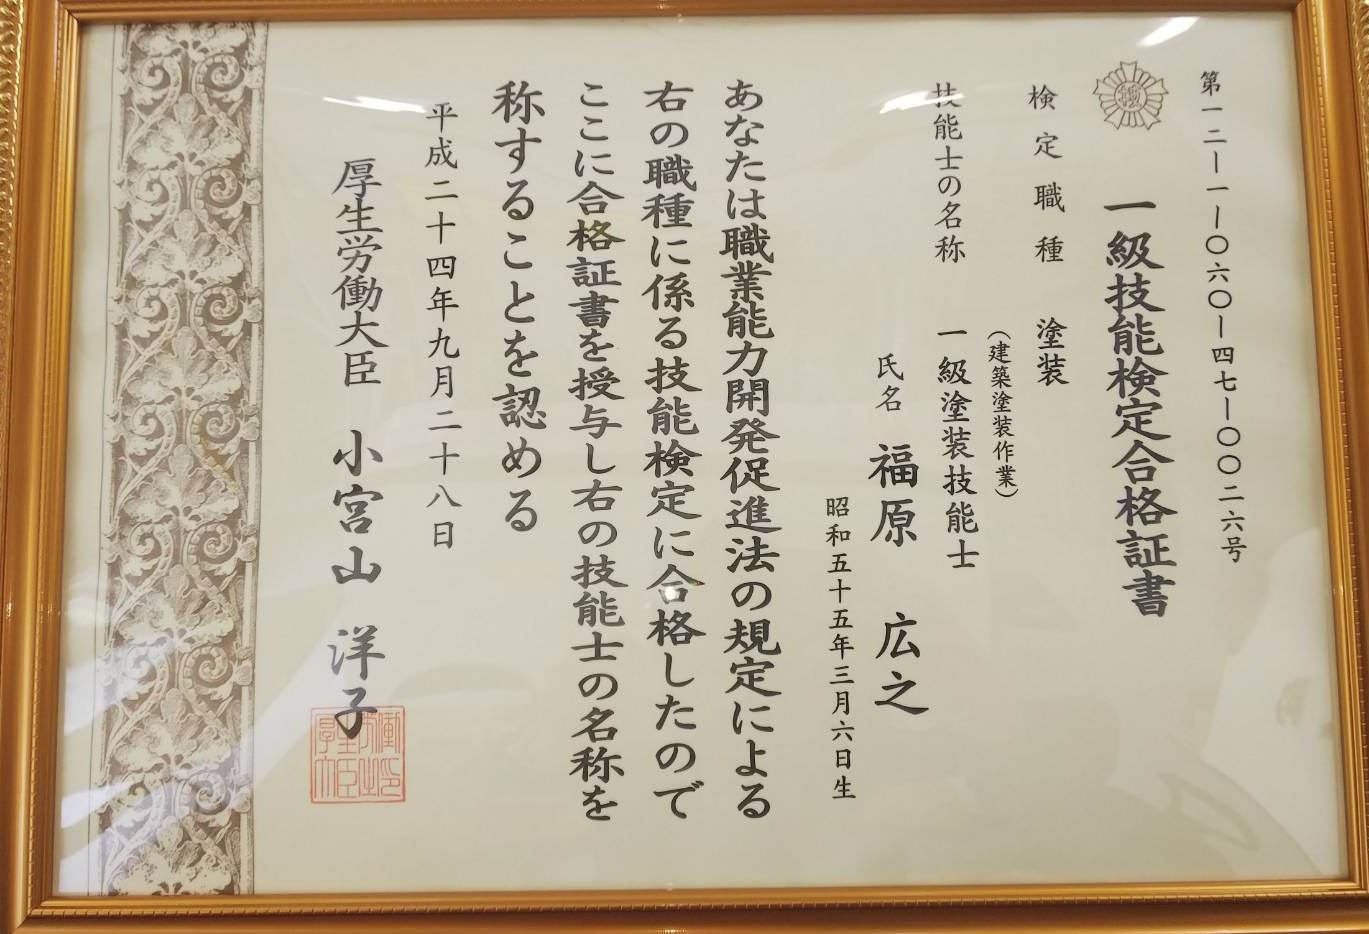 第一二ー一ー〇六〇ー四七ー〇〇二六号
一級技能検定合格証書
検定職種 塗装
（建築塗装作業）
技能士の名称 一級塗装技能士
氏名 福原 広之
昭和五十五年三月六日生
あなたは職業能力開発促進法の規定による
右の職種に係る技能検定に合格したので
ここに合格証書を授与し右の技能士の名称を
称することを認める
平成二十四年九月二十八日
厚生労働大臣 小宮山 洋子